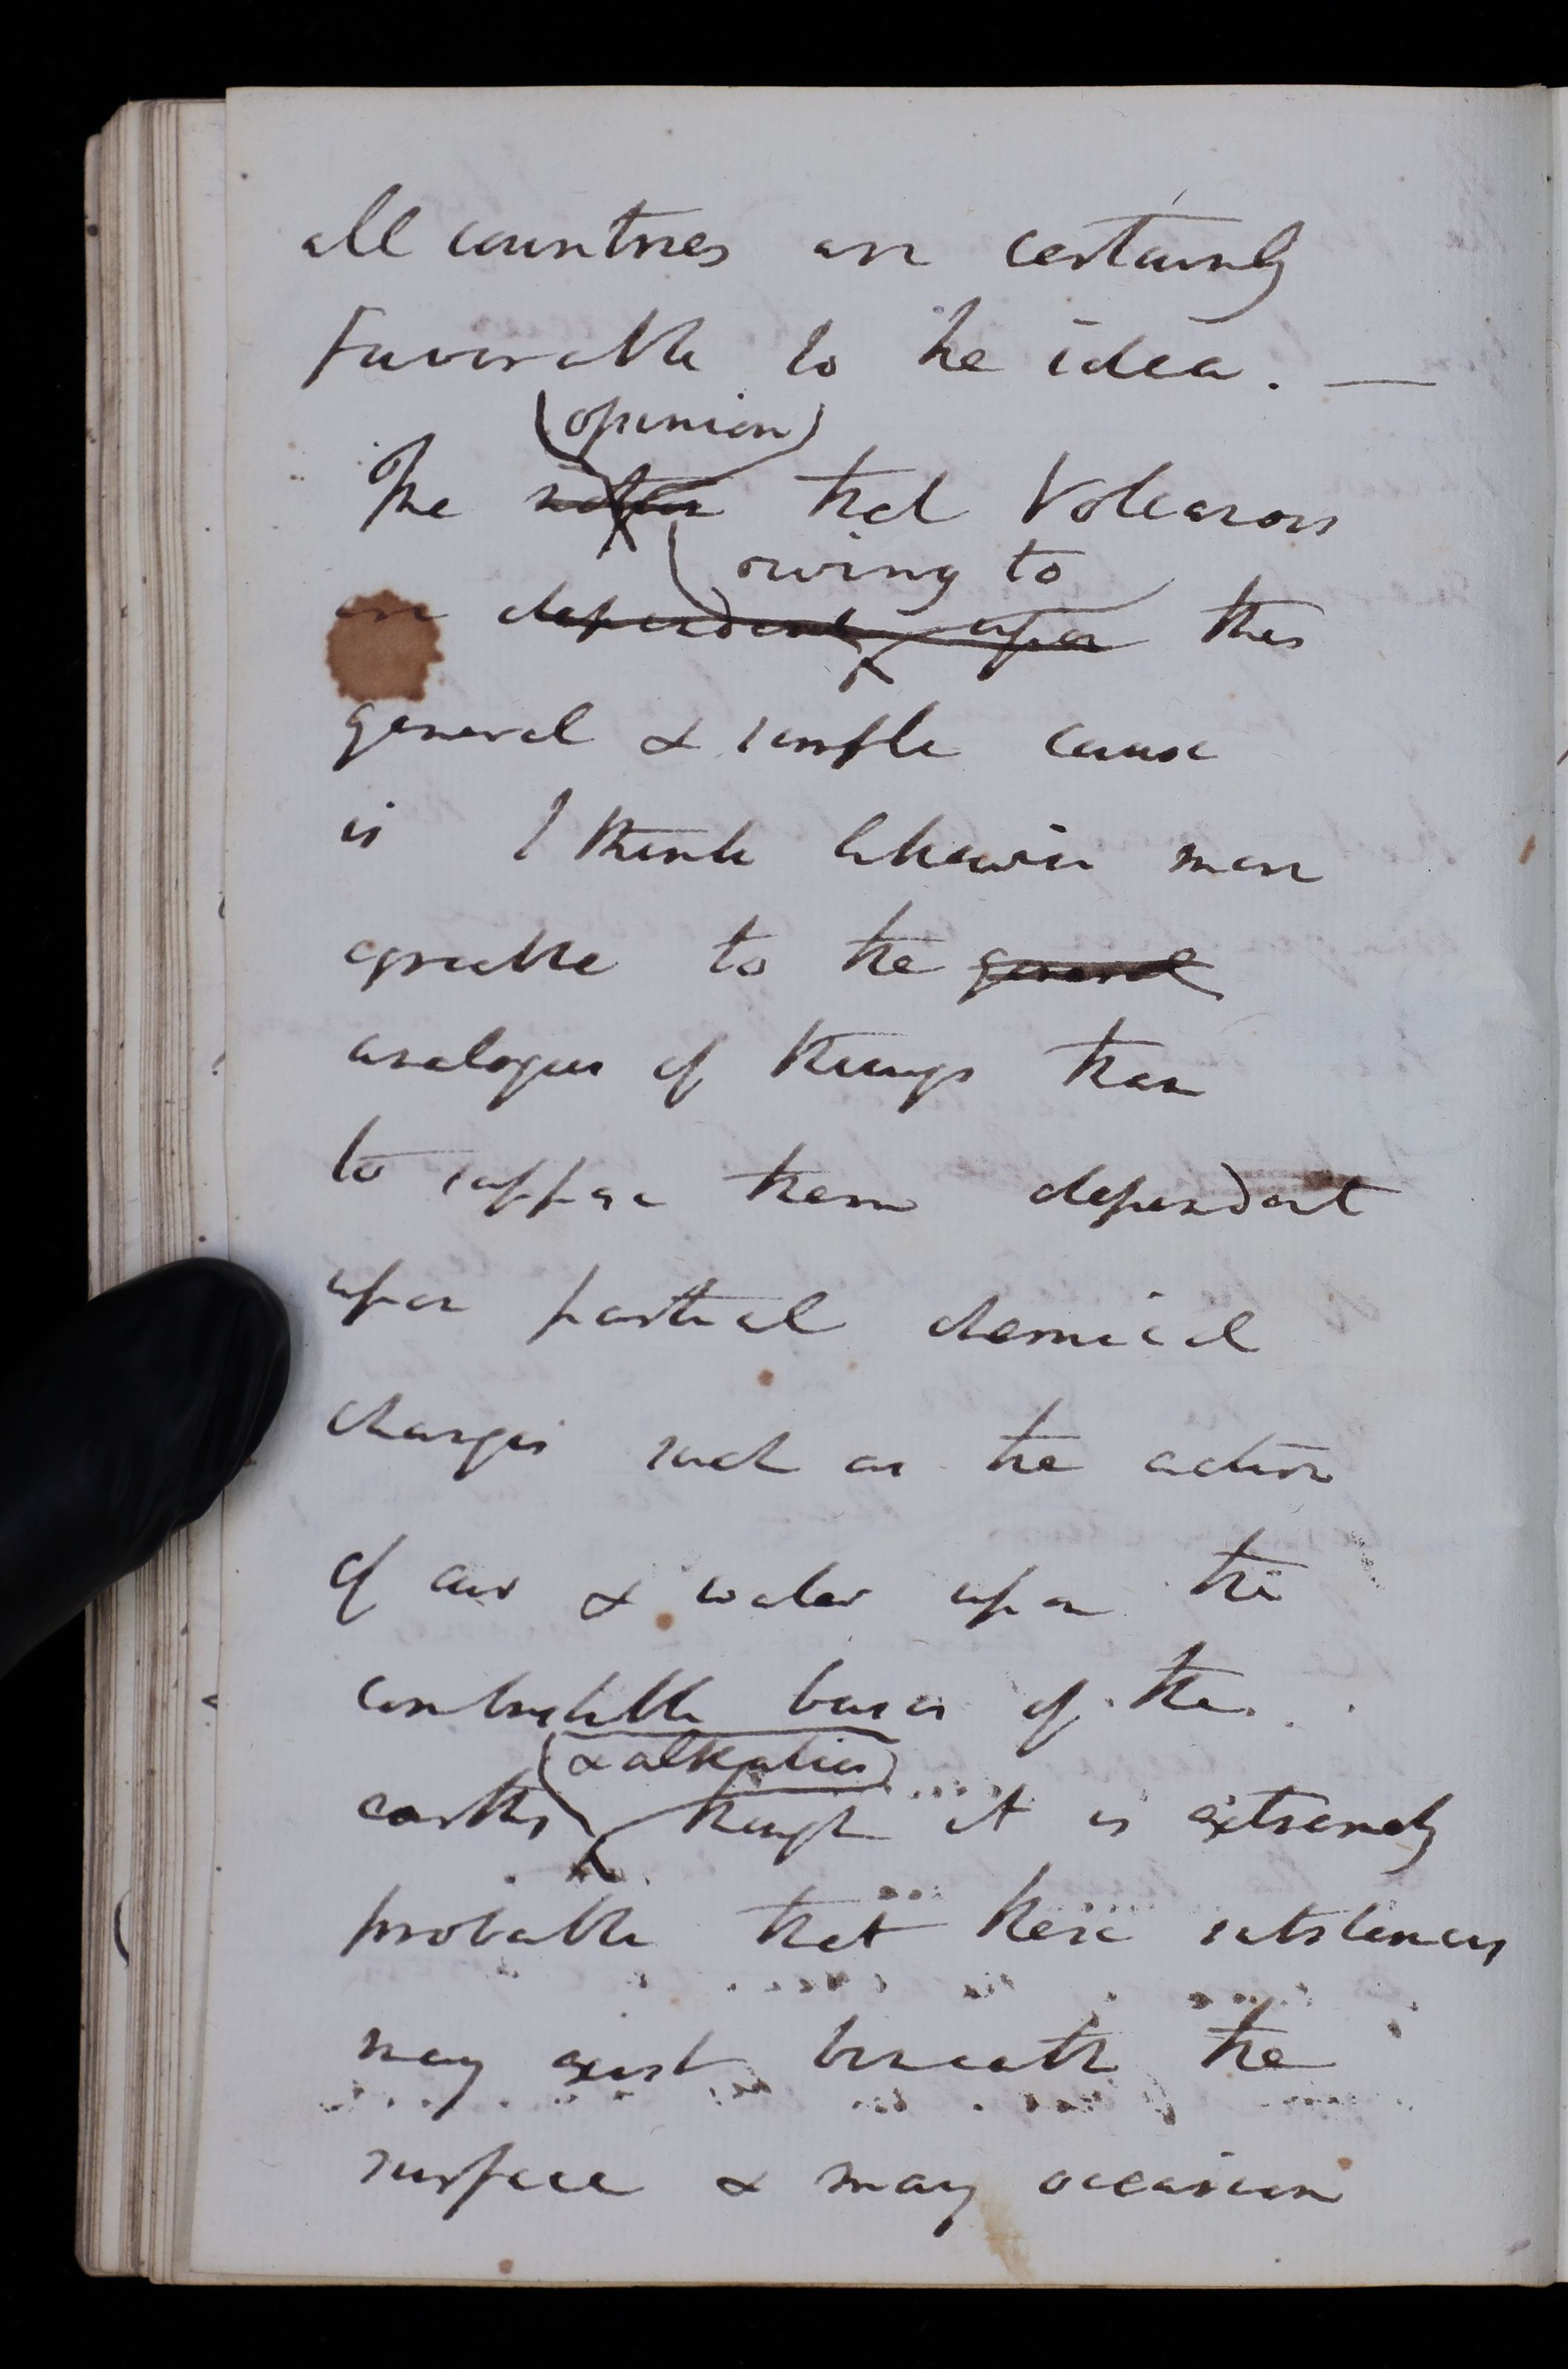 all countries are certainly
favorable to the idea. —
(opinion)
The notion that Volcanoes
owing to
are dependent upon this
general & simple cause
is I think likewise more
agreeable to the general
analogies of things than
to suppose them dependent
upon partial chemical
changes such as the action
of air & water upon the
combustible bases of the
(& alkalies)
earths, though it is extremely
probable that these substances
may exist beneath the
surface & may occasion